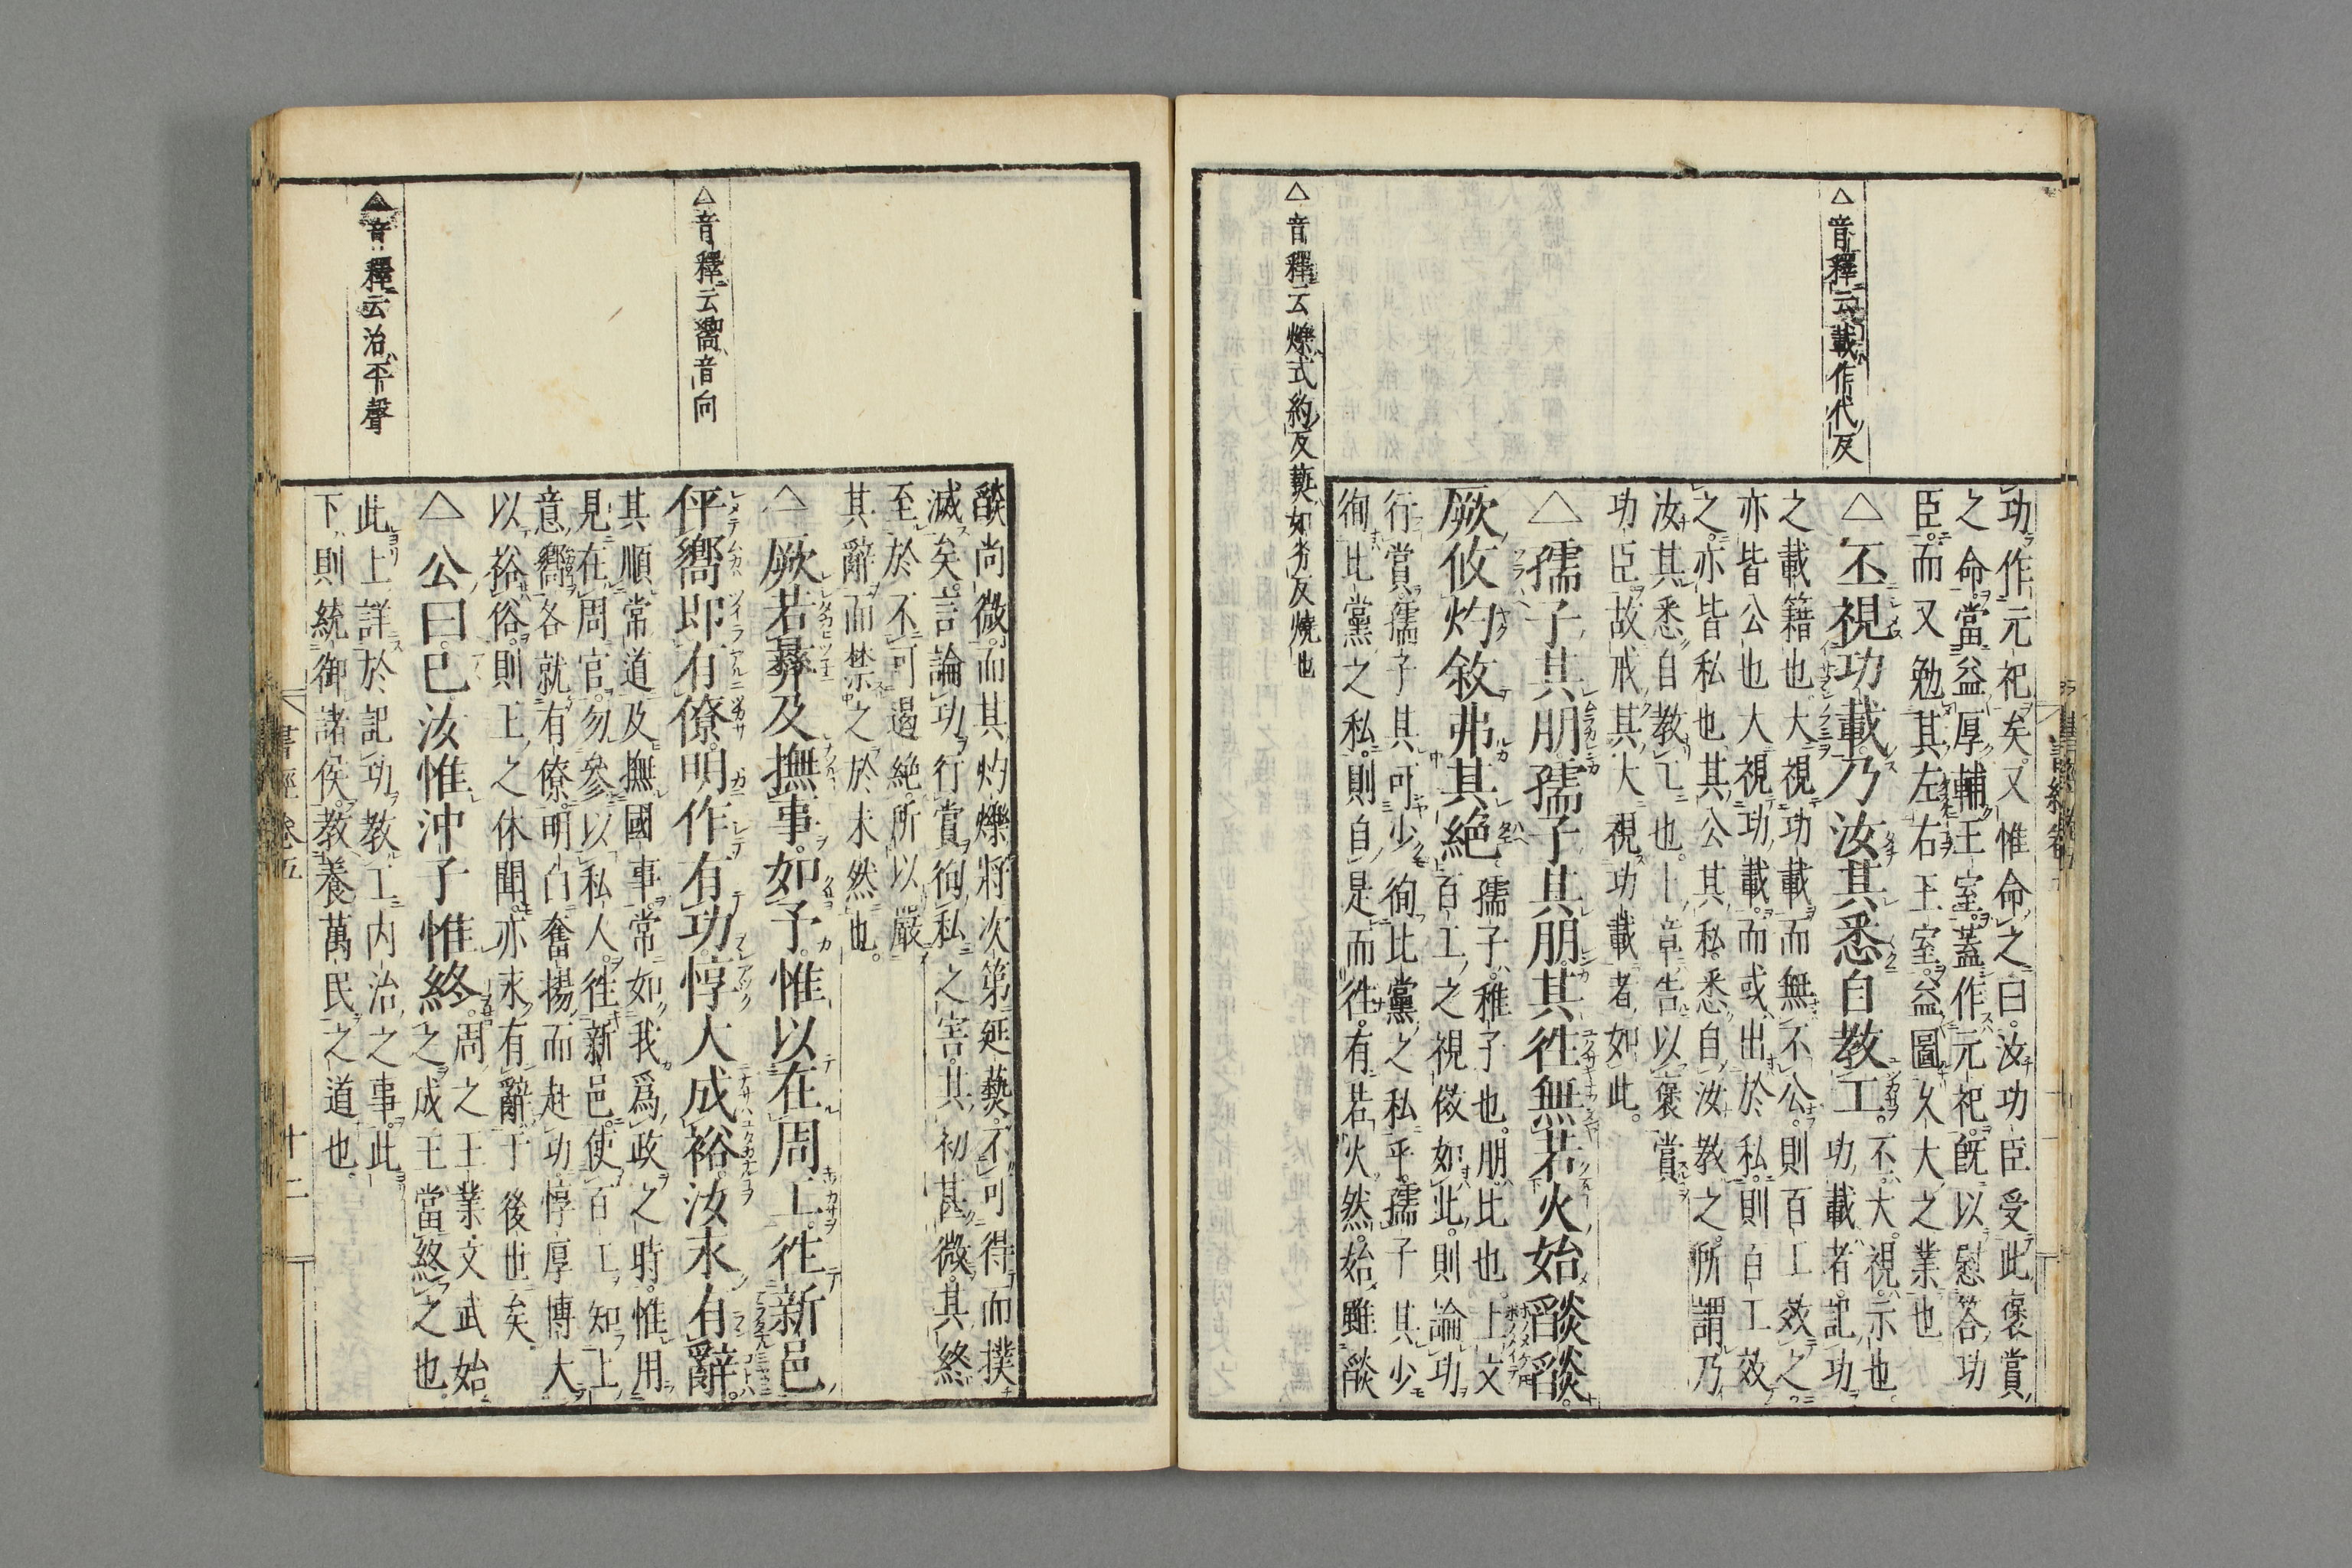 △音釋云載作代反
△音釋云爍式約反爇如劣反燒也
功作元祀矣又惟命之曰汝功臣受此褒賞
之命當益厚輔王室蓋作元祀旣以慰答功
臣而又勉其左右王室益圖久大之業也
△丕視功載乃汝其悉自教工不大視示也
功載者記功
之載籍也大視功載而無不公則百工效之
亦皆公也大視功載而或出於私則百工效
之亦皆私也其公其私悉自汝教之所謂乃
汝其悉自教工也上章告以褒賞
功臣故戒其大視功載者如此
△孺子其朋孺子其朋其往無若火始燄燄
厥攸灼敘弗其絕孺子稚子也朋比也上文
百工之視傚如此則論功
行賞孺子其可少徇比黨之私乎孺子其少
徇比黨之私則自是而往有若火然始雖燄
△音釋云嚮音向
△音釋云治平聲
燄尚微而其灼爍將次第延爇不可得而撲
滅矣言論功行賞徇私之害其初甚微其終
至於不可遏絕所以嚴
其辭而禁之於未然也
△厥若彝及撫事如予惟以在周工往新邑
伻嚮卽有僚明作有功惇大成裕汝永有辭
其順常道及撫國事常如我爲政之時惟用
見在周官勿參以私人往新邑使百工知上
意嚮各就有僚明白奮揚而赴功惇厚博大
以裕俗則王之休聞亦永有辭于後世矣
△公曰已汝惟沖子惟終周之王業文武始
之成王當終之也
此上詳於記功教工內治之事此
下則統御諸侯教養萬民之道也
書經卷五
十二